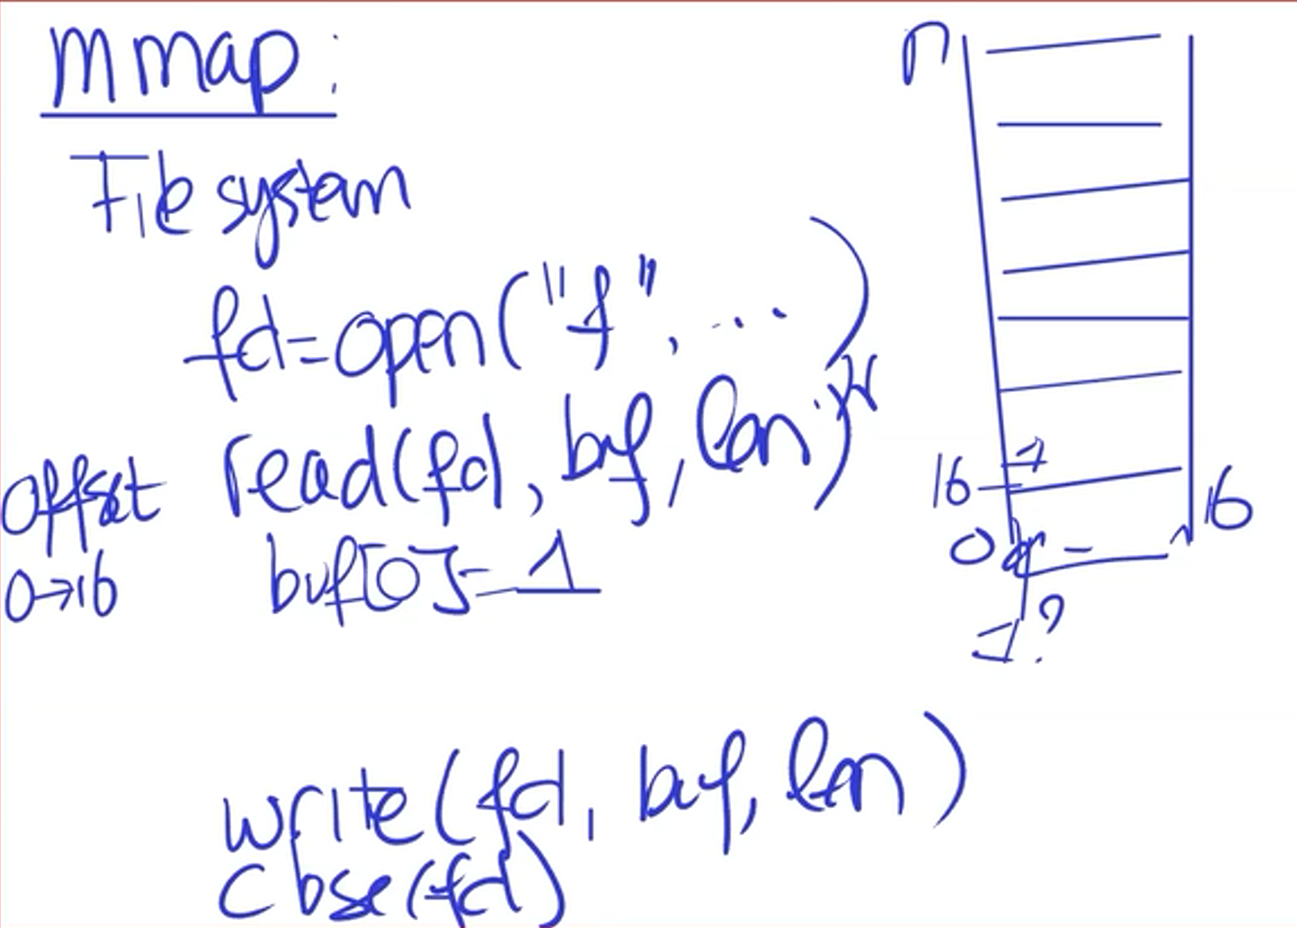 mmap:
File system
fd=open("f", ...)
read(fd, buf, len);
offset
0→16
buf[0]=1
write(fd, buf, len)
close(fd)
n
16
0
16
1?